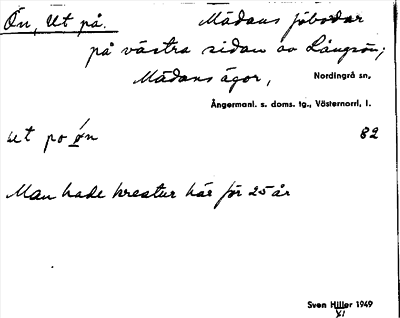 Ön, Ut på. Mädans fäbodar
på västra sidan av Långsön;
Mädans ägor, Nordingrå sn,
Ångermanl. s. doms. tg., Västernorrl. l.
ut po øn 82
Man hade kreatur här för 25 år
Sven Hiller 1949
XI